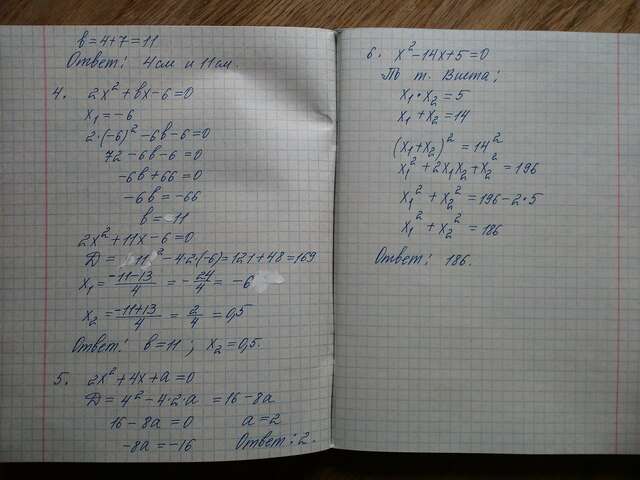 в = 4+7 = 11
Ответ: 4 см и 11 см.
4. 2x² + bx - 6 = 0
x₁ = -6
2·(-6)² - 6b - 6 = 0
72 - 6b - 6 = 0
-6b + 66 = 0
-6b = -66
b = 11
2x² + 11x - 6 = 0
D = 11² - 4·2·(-6) = 121 + 48 = 169
x₁ = (-11-13)/4 = -24/4 = -6
x₂ = (-11+13)/4 = 2/4 = 0,5
Ответ: b = 11; x₂ = 0,5.
5. 2x² + 4x + a = 0
D = 4² - 4·2·a = 16 - 8a
16 - 8a = 0 a = 2
-8a = -16 Ответ: 2.
6. x² - 14x + 5 = 0
По т. Виета:
x₁·x₂ = 5
x₁ + x₂ = 14
(x₁+x₂)² = 14²
x₁² + 2x₁x₂ + x₂² = 196
x₁² + x₂² = 196 - 2·5
x₁² + x₂² = 186
Ответ: 186.